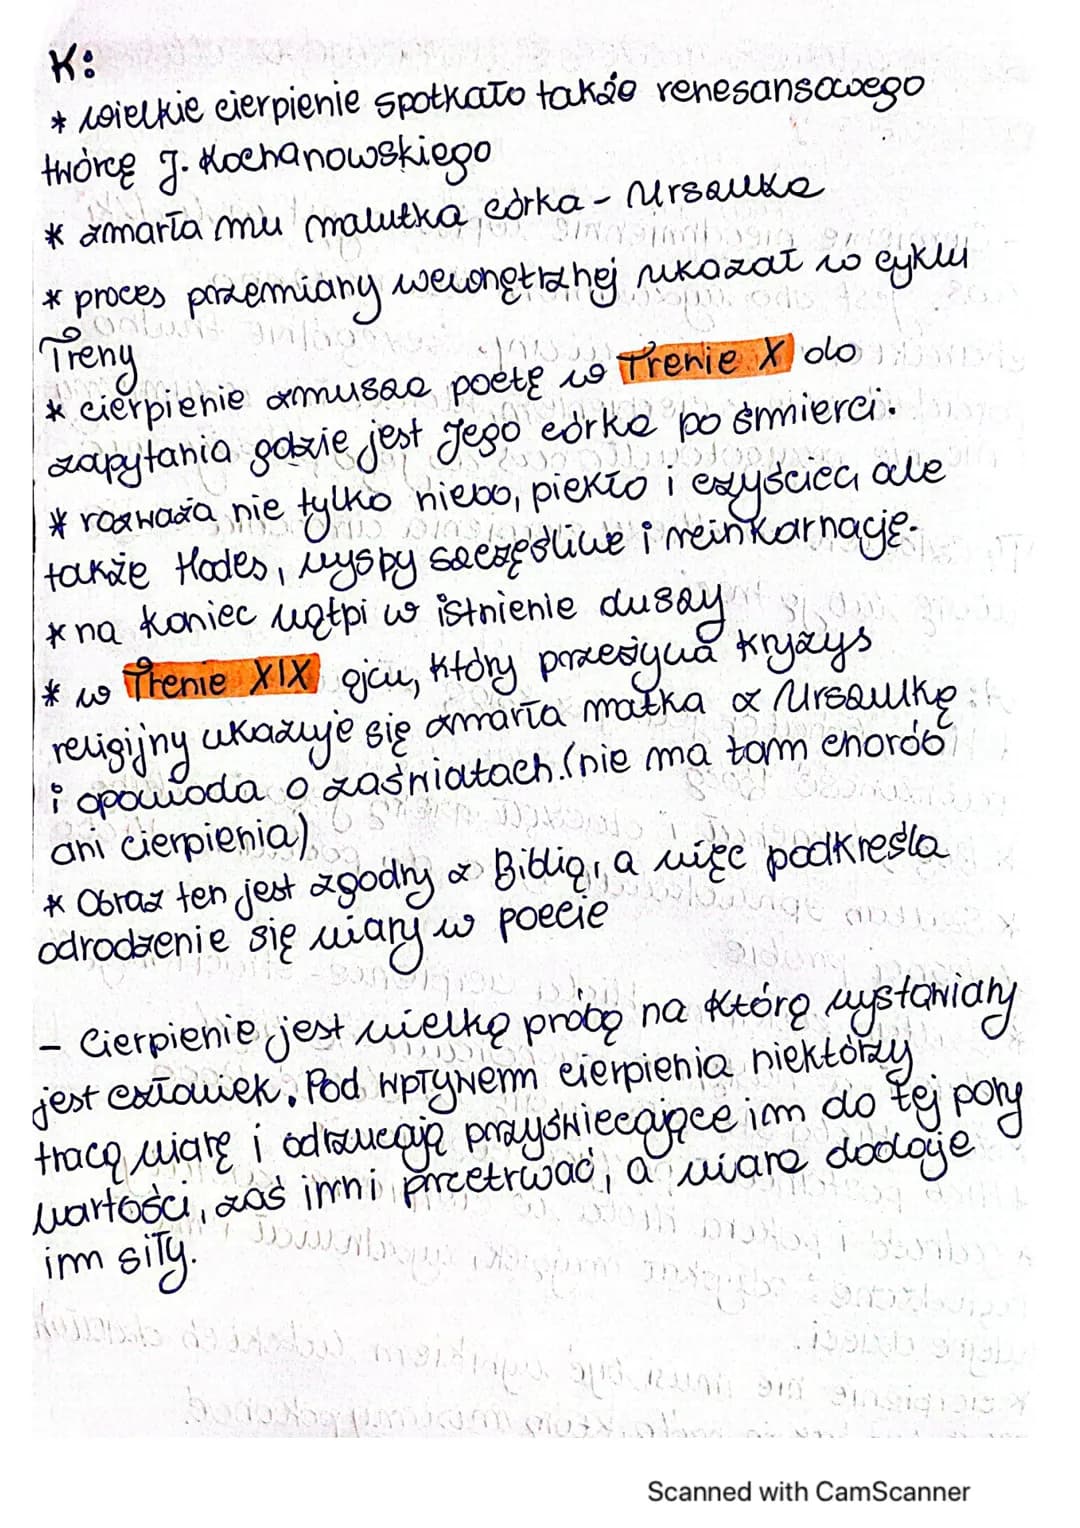 K:
* wielkie cierpienie spotkało także renesansowego
twórcę J. Kochanowskiego
* zmarła mu malutka córka - Urszulka
* proces przemiany wewnętrznej ukazał w cyklu
Treny
* cierpienie zmusza poetę w Trenie X do
zapytania gdzie jest Jego córka po śmierci.
* rozważa nie tylko niebo, piekło i czyściec, ale
także Hades, wyspy szczęśliwe i reinkarnację.
* na koniec wątpi w istnienie duszy
* w Trenie XIX ojcu, który przeżywa kryzys
religijny ukazuje się zmarła matka z Urszulkę
i opowiada o zaświatach. (nie ma tam chorób
ani cierpienia)
* Obraz ten jest zgodny z Biblią, a więc podkreśla
odrodzenie się wiary w poecie
- Cierpienie jest wielką próbą na którą wystawiany
jest człowiek. Pod wpływem cierpienia niektórzy
tracą wiarę i odrzucają przyświecające im do tej pory
wartości, zaś inni przetrwać, a wiara dodaje
im siły.
Scanned with CamScanner